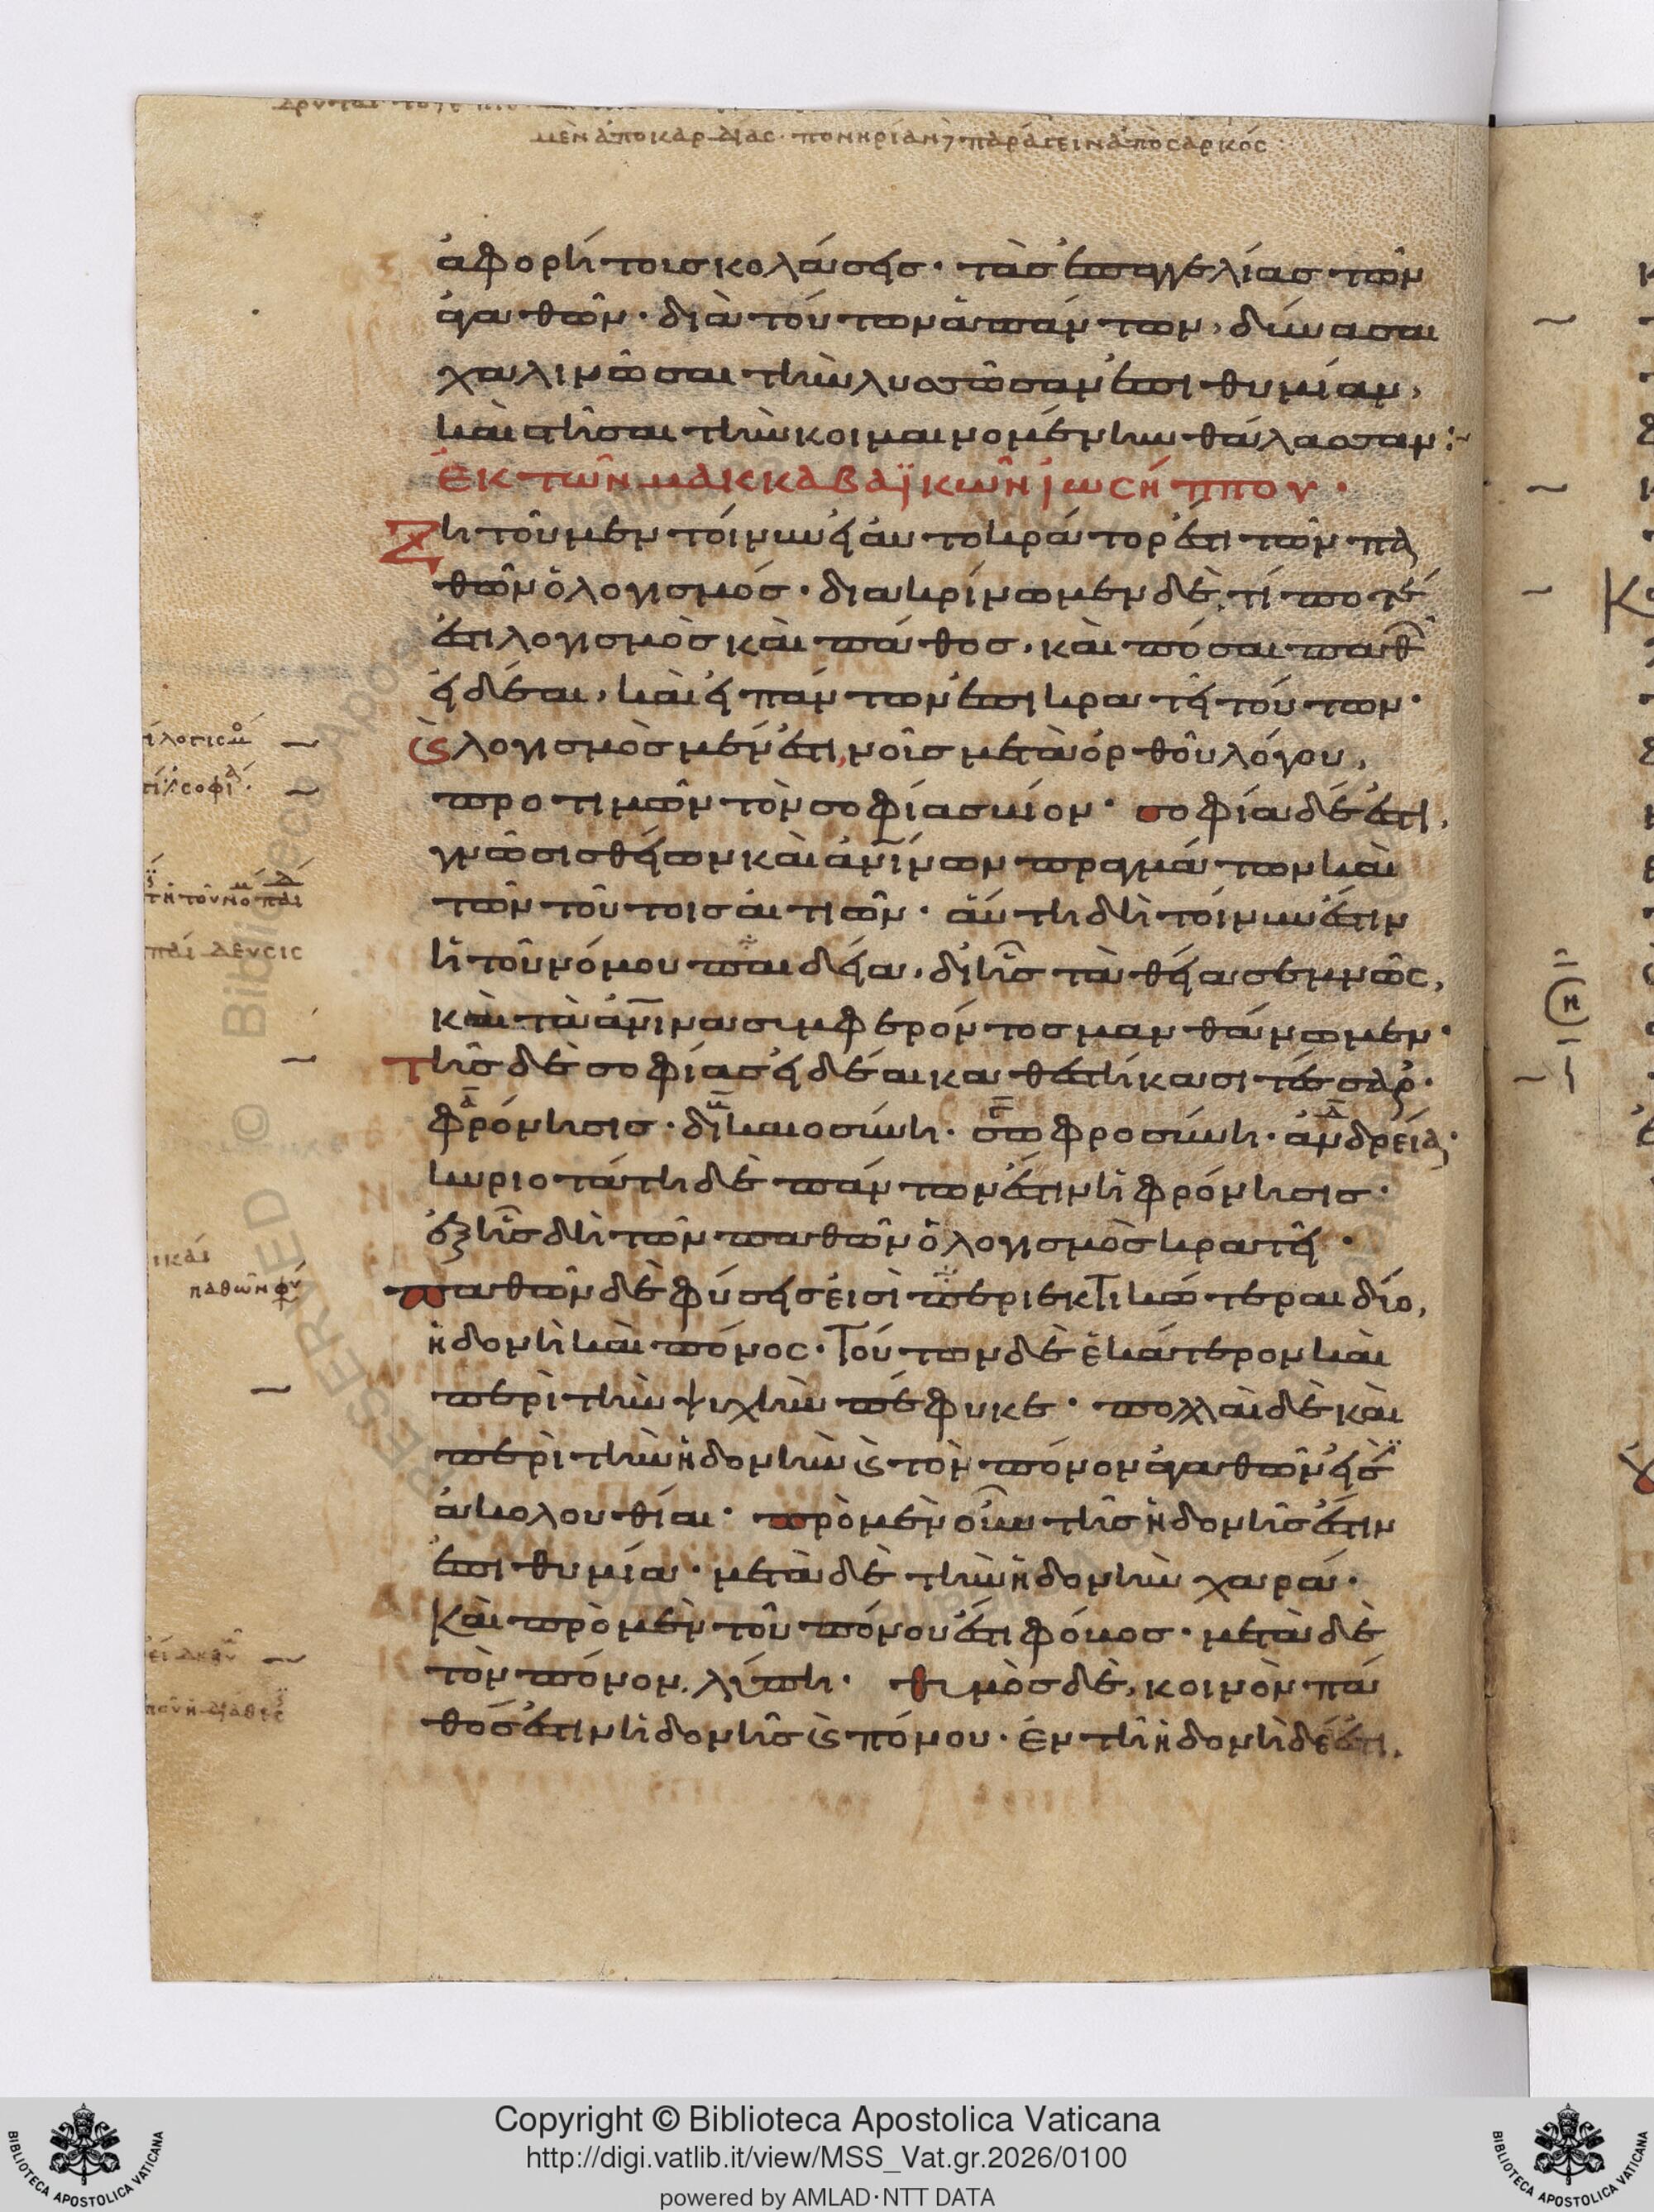 μὲν ἀπὸ καρδίας· πονηρίαν γ παράγειν ἀπὸ σαρκός:
ἀφορήτοις κολάσεσ· τὰς ἐπαγγελίας τῶν
ἀγαθῶν· διὰ τούτων ἁπάντων, δύνασαι
χαλινῶσαι τὴν λυσσῶσαν ἐπιθυμίαν,
καὶ στῆσαι τὴν κοιμαινομένην θάλασσαν:~
ἐκ τῶν μακκαβαϊκῶν ἰωσήππου·
Ζητοῦμεν τοίνυν εἰ αὐτοκράτορ ἐστι τῶν πα
θῶν ὁ λογισμός· διακρίνωμεν δὲ τί ποτέ
ἐστι λογισμὸς καὶ πάθος, καὶ πόσαι παθ
εἰδέαι, καὶ εἰ πάντων ἐπικρατεῖ τούτων·
ϛ λογισμὸς μέν ἐστι, νοῖς μετὰ ὀρθοῦ λόγου,
προτιμῶν τὸν σοφίας βίον· σοφία δέ ἐστι,
γνῶσις θείων καὶ ἀνίνων πραγμάτων καὶ
τῶν τοῦτοις αἰτιῶν· αὕτη δὴ τοίνυν ἐστιν
ἡ τοῦ νόμου παιδεία, δι ἧς τὰ θεία σεμνῶς,
καὶ τὰ ἀνινα συμφερόντος μανθάνωμεν·
τῆς δὲ σοφίας εἰδέαι καθεστήκασι τέσσαρ·
φρόνησις· δικαιοσύνη· σωφροσύνη· ἀνδρεία·
κυριοτάτη δὲ πάντων ἐστιν ἡ φρόνησις·
ἐξ ἧς δὴ τῶν παθῶν ὁ λογισμὸς κρατεῖ·
παθῶν δὲ φύσεις εἰσὶ περιεκτικώτεραι δύο,
ἡδονὴ καὶ πόνος· Τούτων δὲ ἑκάτερον καὶ
περὶ τὴν ψυχὴν πέφυκε· πολλαὶ δὲ καὶ
περὶ τὴν ἡδονὴν ϛ τὸν πόνον ἀγαθῶν εἰσ
ἀκολουθίαι· πρὸ μὲν οὖν τῆς ἡδονῆς ἐστιν
ἐπιθυμία· μετὰ δὲ τὴν ἡδονὴν χαρά·
Καὶ πρὸ μὲν τοῦ πόνου ἐστι φόβος· μετὰ δὲ
τὸν πόνον, λύπη· θυμὸς δὲ, κοινὸν πά
θος ἐστιν ἡδονῆς ϛ πόνου· ἐν τῆ ἡδονὴ δέ ἐστι,
Copyright © Biblioteca Apostolica Vaticana
http://digi.vatlib.it/view/MSS_Vat.gr.2026/0100
powered by AMLAD·NTT DATA
BIBLIOTECA APOSTOLICA VATICANA
BIBLIOTECA APOSTOLICA VATICANA